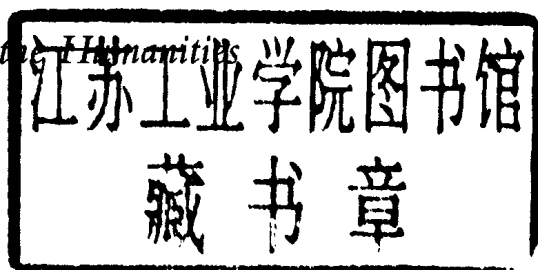 the Humanities
江苏工业学院图书馆
藏书章